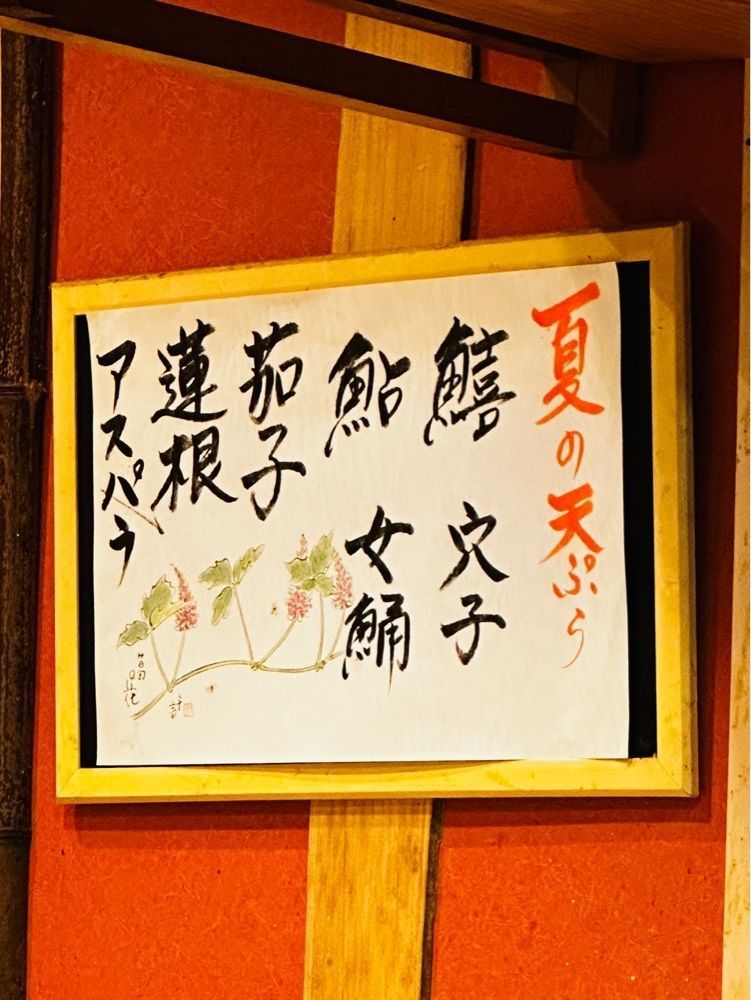 夏の天ぷら
鱚 穴子
鮎 女鯒
茄子
蓮根
アスパラ